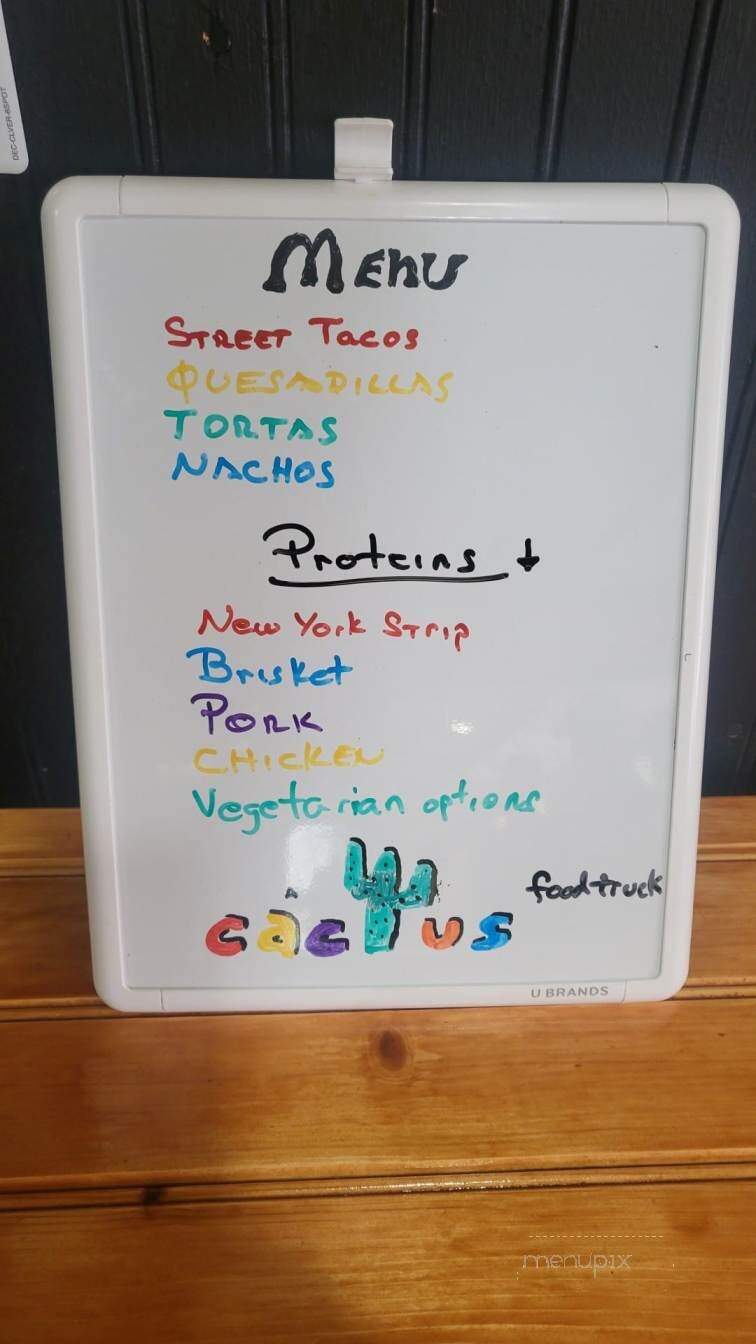 DEC-CLVER-8SPDT
MENU
STREET TACOS
QUESADILLAS
TORTAS
NACHOS
Proteins ↓
New York Strip
Brisket
PORK
CHICKEN
Vegetarian options
foodtruck
cactus
U BRANDS
menupix